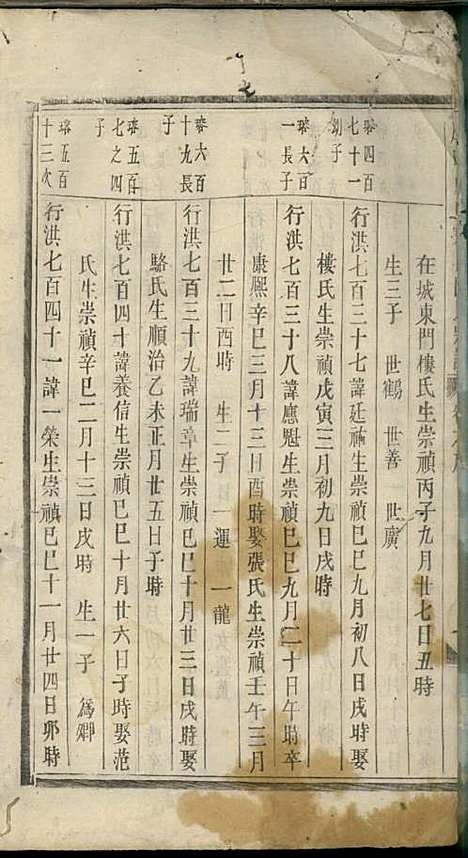 在城東門樓氏生崇禎丙子九月廿七日丑時
生三子 世鶴 世善 世廣
璿四百七十一
子
行洪七百三十七諱廷 生崇禎己巳九月初八日戌時娶
樓氏生崇禎戊寅三月初九日戌時
璿六百一長子
行洪七百三十八諱應魁生崇禎己巳九月二十日午時卒
康熙辛巳三月十三日酉時娶張氏生崇禎壬午三月
廿二日酉時 生二子 一運 一龍
璿六百十九長子
行洪七百三十九諱瑞章生崇禎己巳十月廿三日戌時娶
駱氏生順治乙未正月廿五日子時
璿五百七之四子
行洪七百四十諱養信生崇禎己巳十月廿六日子時娶范
氏生崇禎辛巳二月十三日戌時 生一子 為卿
璿五百十三次
行洪七百四十一諱一榮生崇禎己巳十一月廿四日卯時